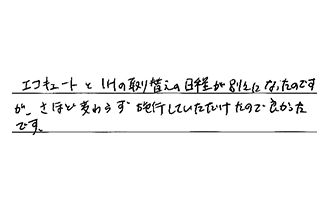 エコキュートとIHの取り替えの日程が別々になったのです
が、さほど変わらず施行していただけたので良かった
です。